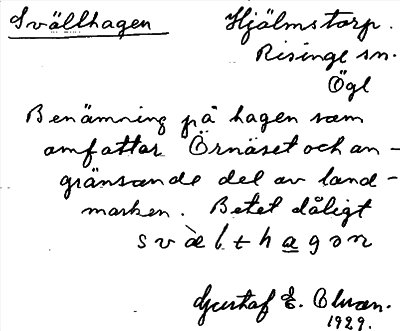 Svällhagen Hjälmstorp.
Risinge sn.
Ögl
Benämning på hagen som
omfattar Örnäset och an-
gränsande del av land-
marken. Betet dåligt
svæ̀lthagən
Gustaf E. Olsson.
1929.